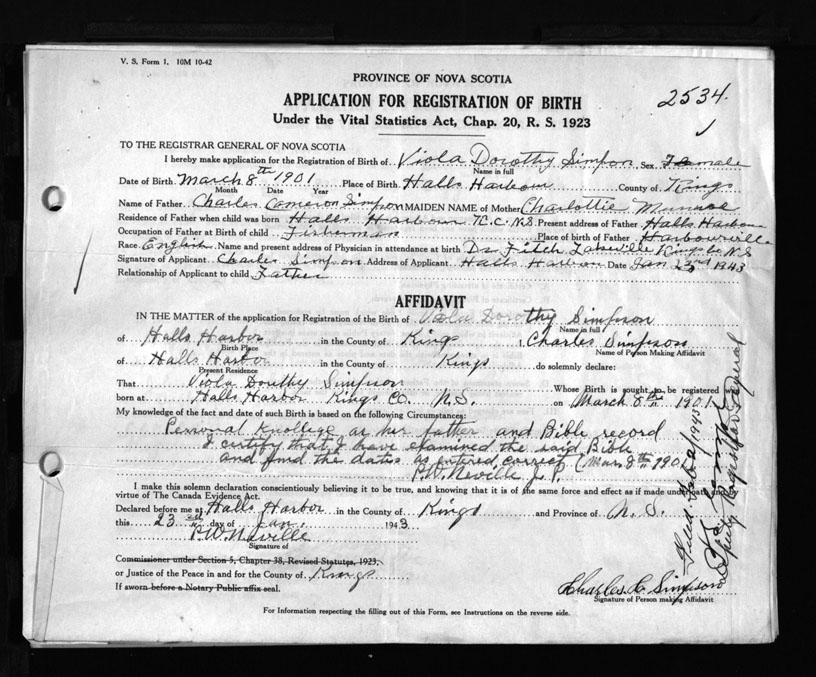 V. S. Form 1. 10M 10-42
PROVINCE OF NOVA SCOTIA
2534.
APPLICATION FOR REGISTRATION OF BIRTH
Under the Vital Statistics Act, Chap. 20, R. S. 1923
TO THE REGISTRAR GENERAL OF NOVA SCOTIA
I hereby make application for the Registration of Birth of Viola Dorothy Simpson Sex Female
Name in full
Date of Birth March 8th 1901 Place of Birth Halls Harbour County of Kings
Month Date Year
Name of Father Charles Cameron Simpson MAIDEN NAME of Mother Charlottie Munroe
Residence of Father when child was born Halls Harbour K.C. N.S. Present address of Father Halls Harbour
Occupation of Father at Birth of child Fisherman Place of birth of Father Harbourville
Race English Name and present address of Physician in attendance at birth Dr Fitch Lakeville Kings Co N.S
Signature of Applicant Charles Simpson Address of Applicant Halls Harbour Date Jan 23rd 1943
Relationship of Applicant to child Father
AFFIDAVIT
IN THE MATTER of the application for Registration of the Birth of Viola Dorothy Simpson
Name in full
of Halls Harbor in the County of Kings I, Charles Simpson
Birth Place Name of Person Making Affidavit
of Halls Harbor in the County of Kings do solemnly declare:
Present Residence
That Viola Dorothy Simpson Whose Birth is sought to be registered was
born at Halls Harbor Kings Co. N.S. on March 8th 1901
My knowledge of the fact and date of such Birth is based on the following Circumstances:
Personal Knollege as her father and Bible record
I certify that I have examined the said Bible
and find the dates as entered correct (Mar 8th 1901
P.W. Neville J.P.
I make this solemn declaration conscientiously believing it to be true, and knowing that it is of the same force and effect as if made under oath and by
virtue of The Canada Evidence Act.
Declared before me at Halls Harbor in the County of Kings and Province of N.S.
this 23rd day of Jan. 1943
P.W. Neville
Signature of
Commissioner under Section 5, Chapter 38, Revised Statutes, 1923,
or Justice of the Peace in and for the County of Kings
If sworn before a Notary Public affix seal.
Charles C. Simpson
Signature of Person making Affidavit
For Information respecting the filling out of this Form, see Instructions on the reverse side.
Deputy Registrar General